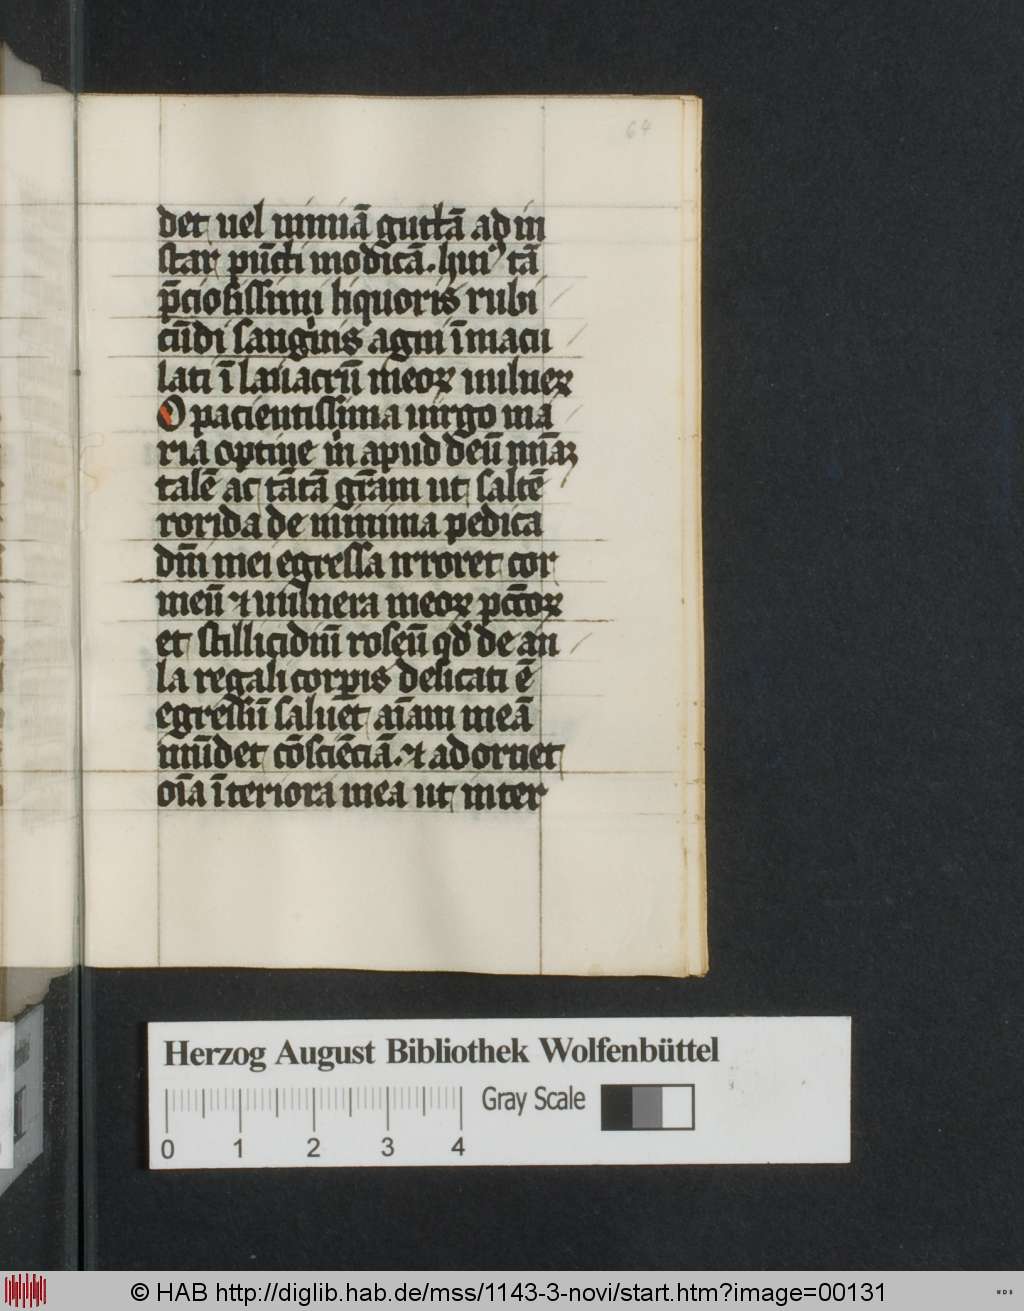 64
det uel minimā guttā ad in
star pūcti modicā. huiꝰ tā
p̄ciosissimi liquoris rubi
cūdi sanguīs agni īmacu
lati ī lauacrū meoꝝ uulneꝝ
O pacientissima uirgo ma
ria optine m̄ apud deū miāꝝ
talē ac tātā gr̄am ut saltē
rorida de minima pedica
dn̄i mei egressa irroret cor
meū ⁊ uulnera meoꝝ pcc̄oꝝ
et stillicidiū roseū qd̓ de au
la regali corꝑis delicati ē
egressū saluet aīam meā
mūdet cōsciēciā. ⁊ adornet
oīa īteriora mea ut inter
Herzog August Bibliothek Wolfenbüttel
Gray Scale
0 1 2 3 4
© HAB http://diglib.hab.de/mss/1143-3-novi/start.htm?image=00131